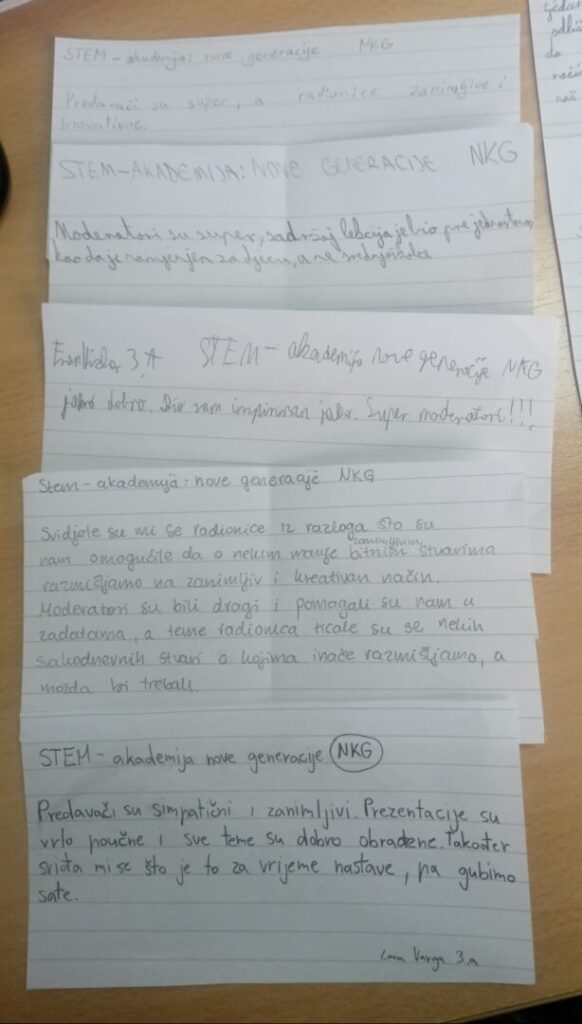 STEM - akademija: nove generacije NKG
Predavači su super, a radionice zanimljive i
inovativne.
STEM-AKADEMIJA: NOVE GENERACIJE NKG
Moderatori su super, sadržaj lekcija je bio pre jednostavan
kao da je namjenjen za djecu, a ne srednjoškolce
3.A STEM - akademija nove generacije NKG
jako dobro. Bio sam impresionan jako. Super moderatori!!!
Stem - akademija: nove generacije NKG
Svidjele su mi se radionice iz razloga što su
nam omogućile da o nekim manje bitnim zanimljivim stvarima
razmišljamo na zanimljiv i kreativan način.
Moderatori su bili dragi i pomagali su nam u
zadatcima, a teme radionica ticale su se nekih
svakodnevnih stvari o kojima inače razmišljamo, a
možda bi trebali.
STEM - akademija nove generacije NKG
Predavači su simpatični i zanimljivi. Prezentacije su
vrlo poučne i sve teme su dobro obrađene. Također
sviđa mi se što je to za vrijeme nastave, pa gubimo
sate.
Varga 3.a